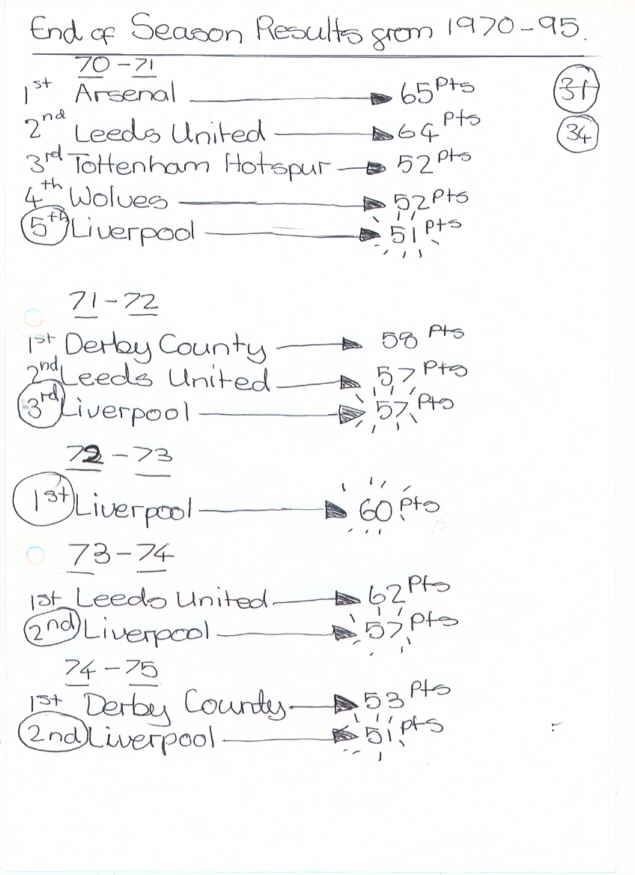 End of Season Results from 1970-95.
70-71
1st Arsenal 65 Pts 31
2nd Leeds United 64 Pts 34
3rd Tottenham Hotspur 52 Pts
4th Wolves 52 Pts
5th Liverpool 51 Pts
71-72
1st Derby County 58 Pts
2nd Leeds United 57 Pts
3rd Liverpool 57 Pts
72-73
1st Liverpool 60 Pts
73-74
1st Leeds United 62 Pts
2nd Liverpool 57 Pts
74-75
1st Derby County 53 Pts
2nd Liverpool 51 Pts